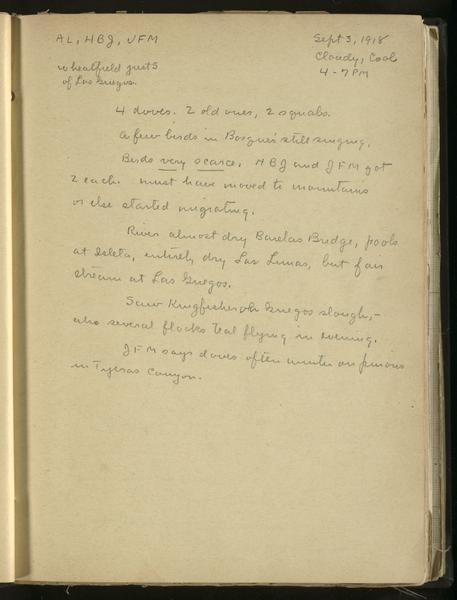 AL, HBJ, JFM
Sept 3, 1918
Cloudy, Cool
4-7 PM
wheatfield just S
of Los Griegos.
4 doves. 2 old ones, 2 squabs.
A few birds in Bosques still singing.
Birds very scarce. HBJ and JFM got
2 each. must have moved to mountains
or else started migrating.
River almost dry Barelas Bridge, pools
at Isleta, entirely dry Los Lunas, but fair
stream at Los Griegos.
Saw Kingfisher on Griegos slough, -
also several flocks teal flying in evening.
JFM says doves often winter on pinons
in Tijeras Canyon.